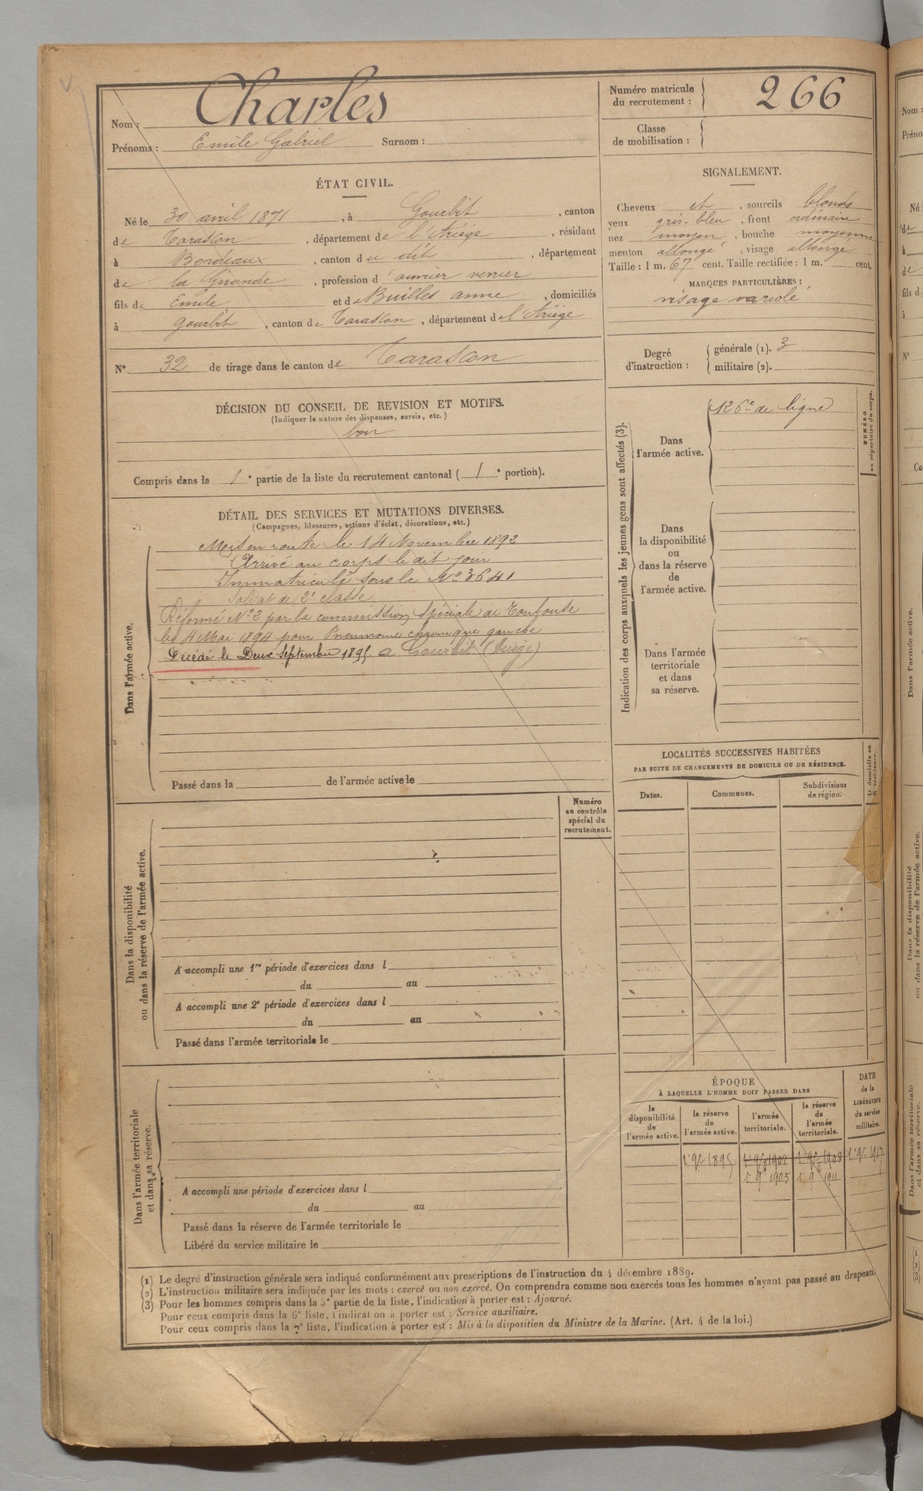 Charles
Nom :
Prénoms : Emile Gabriel Surnom :
Numéro matricule du recrutement : 266
Classe de mobilisation :
ÉTAT CIVIL.
Né le 30 avril 1871, à Gourbit, canton
de Tarascon, département de l'Ariège, résidant
à Bordeaux, canton du dit, département
de la Gironde, profession d'ouvrier verrier
fils de Emile et de Builles anne, domiciliés
à Gourbit, canton de Tarascon, département de l'Ariège
N° 32 de tirage dans le canton de Tarascon
SIGNALEMENT.
Cheveux et, sourcils blonds
yeux gris bleu, front ordinaire
nez moyen, bouche moyenne
menton allongé, visage allongé
Taille : 1 m. 67 cent. Taille rectifiée : 1 m. cent.
MARQUES PARTICULIÈRES :
visage variolé
Degré d'instruction : générale (1). 3
militaire (2).
DÉCISION DU CONSEIL DE REVISION ET MOTIFS.
(Indiquer la nature des dispenses, sursis, etc.)
bon
Compris dans la 1e partie de la liste du recrutement cantonal ( 1e portion).
DÉTAIL DES SERVICES ET MUTATIONS DIVERSES.
(Campagnes, blessures, actions d'éclat, décorations, etc.)
Dans l'armée active.
Mis en route le 14 Novembre 1892
Arrivé au corps le dit jour
Immatriculé sous le N° 3641
Soldat de 2e classe
Réformé N° 2 par la commission spéciale de Toulouse
le 4 Mai 1894 pour Pneumonie chronique gauche
Décédé le Deux septembre 1895 à Gourbit (Ariège)
Passé dans la de l'armée active le
Indication des corps auxquels les jeunes gens sont affectés (3).
NUMÉRO au répertoire du corps.
Dans l'armée active.
126e de ligne
Dans la disponibilité ou dans la réserve de l'armée active.
Dans l'armée territoriale et dans sa réserve.
LOCALITÉS SUCCESSIVES HABITÉES
PAR SUITE DE CHANGEMENTS DE DOMICILE OU DE RÉSIDENCE.
Dates. Communes. Subdivisions de région.
Numéro au contrôle spécial du recrutement.
Dans la disponibilité ou dans la réserve de l'armée active.
A accompli une 1re période d'exercices dans l
du au
A accompli une 2e période d'exercices dans l
du au
Passé dans l'armée territoriale le
Dans l'armée territoriale et dans sa réserve.
A accompli une période d'exercices dans l
du au
Passé dans la réserve de l'armée territoriale le
Libéré du service militaire le
ÉPOQUE
À LAQUELLE L'HOMME DOIT PASSER DANS
la disponibilité de l'armée active.
la réserve de l'armée active.
l'armée territoriale.
la réserve de l'armée territoriale.
DATE de la LIBÉRATION du service militaire.
1895 1902 1908 1917
1905 1911
(1) Le degré d'instruction générale sera indiqué conformément aux prescriptions de l'instruction du 4 décembre 1889.
(2) L'instruction militaire sera indiquée par les mots : exercé ou non exercé. On comprendra comme non exercés tous les hommes n'ayant pas passé au drapeau.
(3) Pour les hommes compris dans la 5e partie de la liste, l'indication à porter est : Ajourné.
Pour ceux compris dans la 6e liste, l'indication à porter est : Service auxiliaire.
Pour ceux compris dans la 7e liste, l'indication à porter est : Mis à la disposition du Ministre de la Marine. (Art. 4 de la loi.)